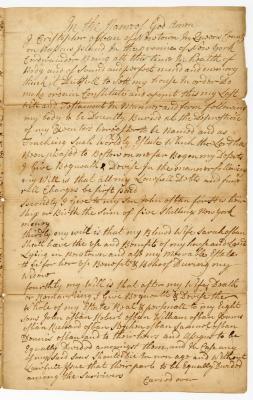 In the Name of God Amen
I Christopher of Newtown in Queens County
on Nassau Island In the province of New York
Being att this time In health of
body and of Sound and perfect mind and memory
think it to Sett my house In order Do
make ordain Constitute and appoint this my Last
will and Testament In Manner and form following
my body to be Decently Buried at the Discretion
of my Executors hereafter Named and as
Touching Such worldly Estate which the Lord has
Been pleased to Bestow on me for Begon my Debts
I Give Bequeath & Devise In the manner following
my will is that all my Lawfull Debts and funeral
Charges be first paid
Secondly I give to my Son John for his
with the Sum of five Shilling New york
money
thirdly my will is that my Beloved wife Sarah
Shall have the Use and Benefit of my house and Land
Lying in Newtown and all my Movable Estate
it is for her Use Benefit & Behoof During my
Widow
fourthly my will is that after my wifes Death
or Remarrying I Give Bequeath & Devise the
whole of my Estate Real & personal to my Eight
Sons John Robert William James
Richard Stephen Samuel
Dennis and to their heirs and assigns to be
Equally Divided amongst them and In Case any
of my said Sons Should Die In non age and without
Lawfull Issue that their part to be Equally Divided
among the Survivors
Carried over